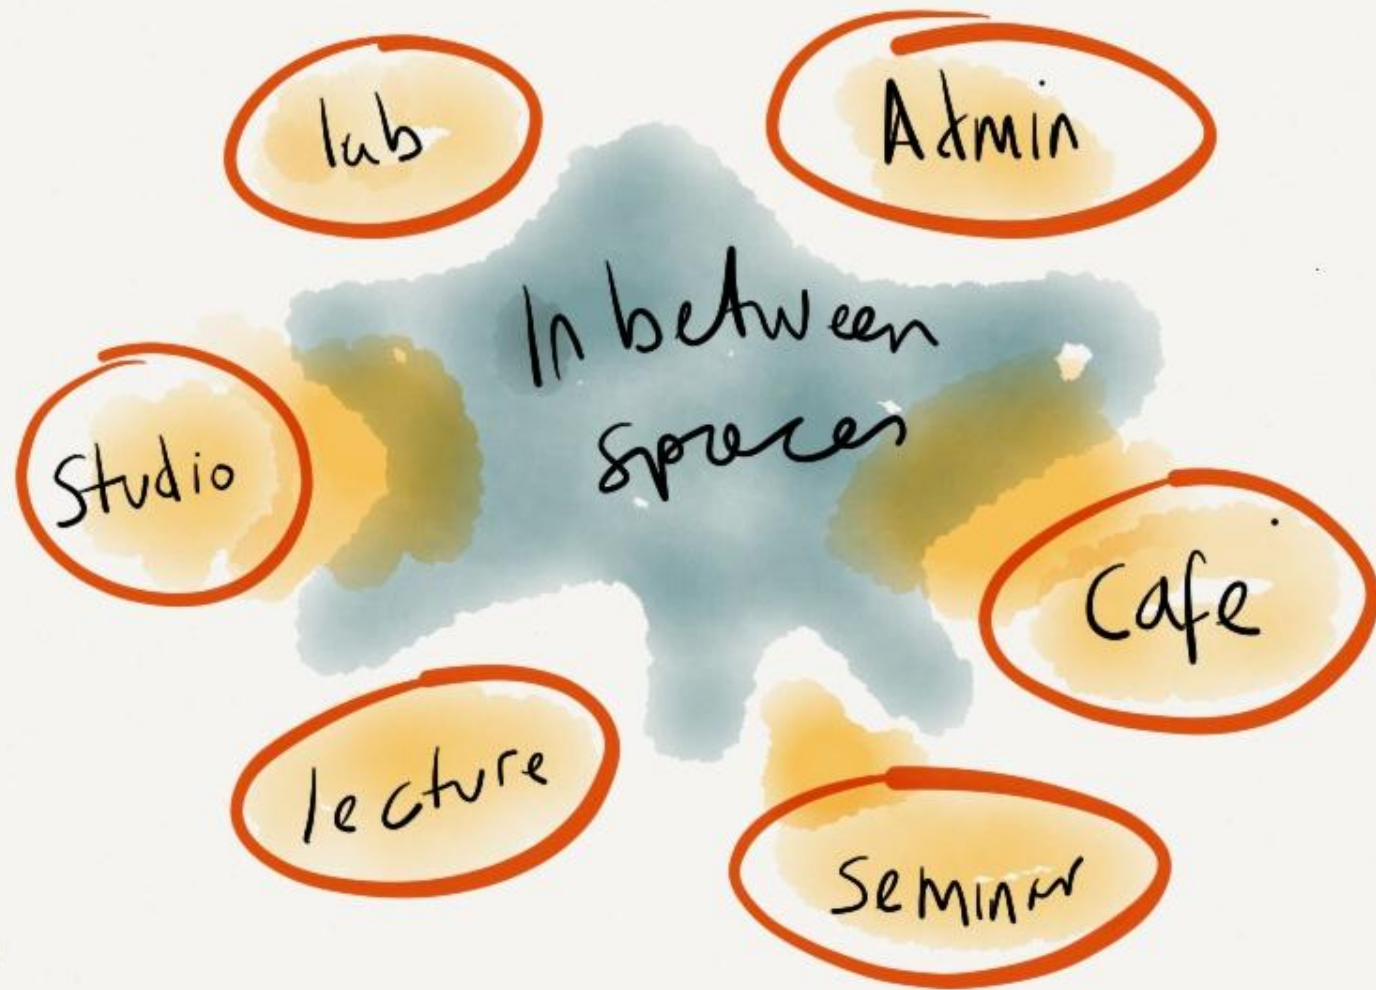 lab
Admin
In between
spaces
Studio
Cafe
lecture
Seminar